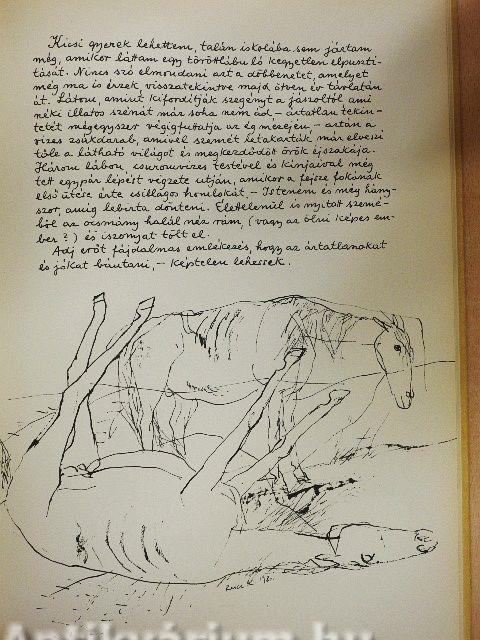 Kicsi gyerek lehettem, talán iskolába sem jártam
még, amikor láttam egy töröttlábu ló kegyetlen elpuszti-
tását. Nincs szó elmondani azt a döbbenetet, amelyet
még ma is érzek visszatekintve majd ötven év távlatán
át. Látom, amint kifordítják szegényt a jászoltól ami
néki illatos szénát már soha nem ád – ártatlan tekin-
tetét mégegyszer végigfuttatja az ég mezején – aztán a
vizes zsákdarab, amivel szemét letakarták már elveszi
tőle a látható világot és megkezdődött örök éjszakája.
Három lábon, csuromvizes testével és kínjaival még
tett egypár lépést végzete útján, amikor a fejsze fokának
első ütése érte csillagos homlokát, – Istenem és még hány-
szor, amíg lebírta dönteni. Élettelenül is nyitott szemé-
ből az ocsmány halál néz rám, (vagy az ölni képes em-
ber?) és iszonyat tölt el.
Adj erőt fájdalmas emlékezés, hogy az ártatlanokat
és jókat bántani, – képtelen lehessek.
Antikvárium.hu